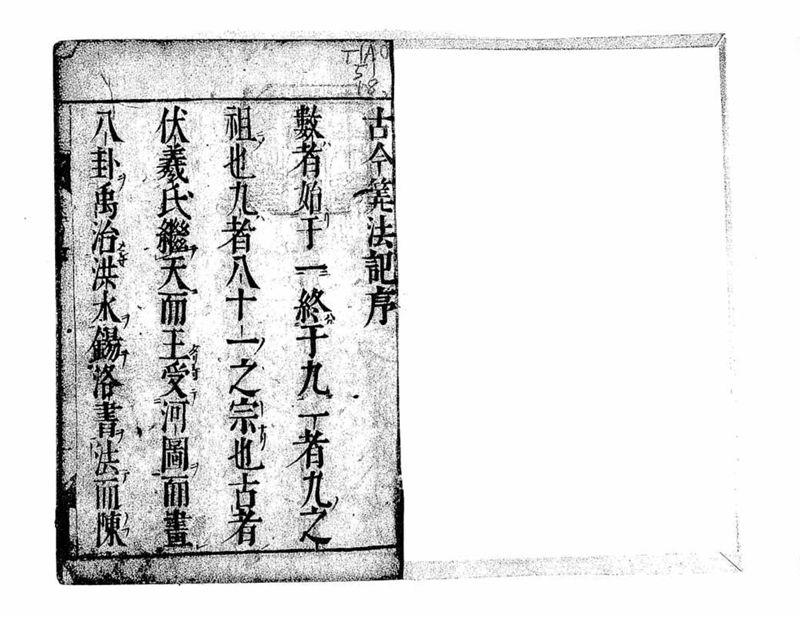 古今筭法記序
數者始于一終于九一者九之
祖也九者八十一之宗也古者
伏羲氏繼天而王受河圖而畫
八卦禹治洪水錫洛書法而陳